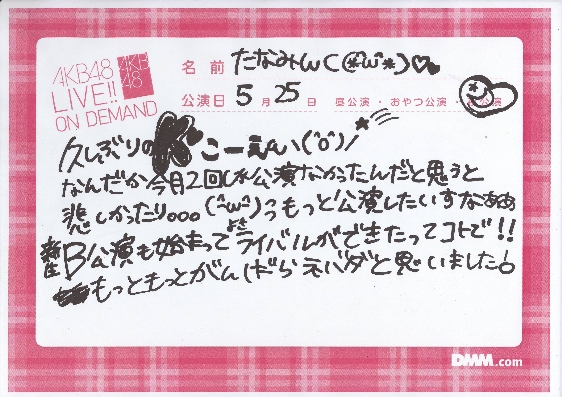 AKB48
LIVE!!
ON DEMAND
AKB
48
名前 たなみんC(*^ω^*)♡♥
公演日 5月25日 昼公演・おやつ公演・夜公演
久しぶりのK♥こーえん\(^o^)/
なんだか今月2回しか公演なかったんだと思うと
悲しかったり。。。(^ω^)もっと公演したいすなぁぁ
B公演も始まってライバルができたってコトで!!
もっともっとがんばらえばダと思いました!
DMM.com